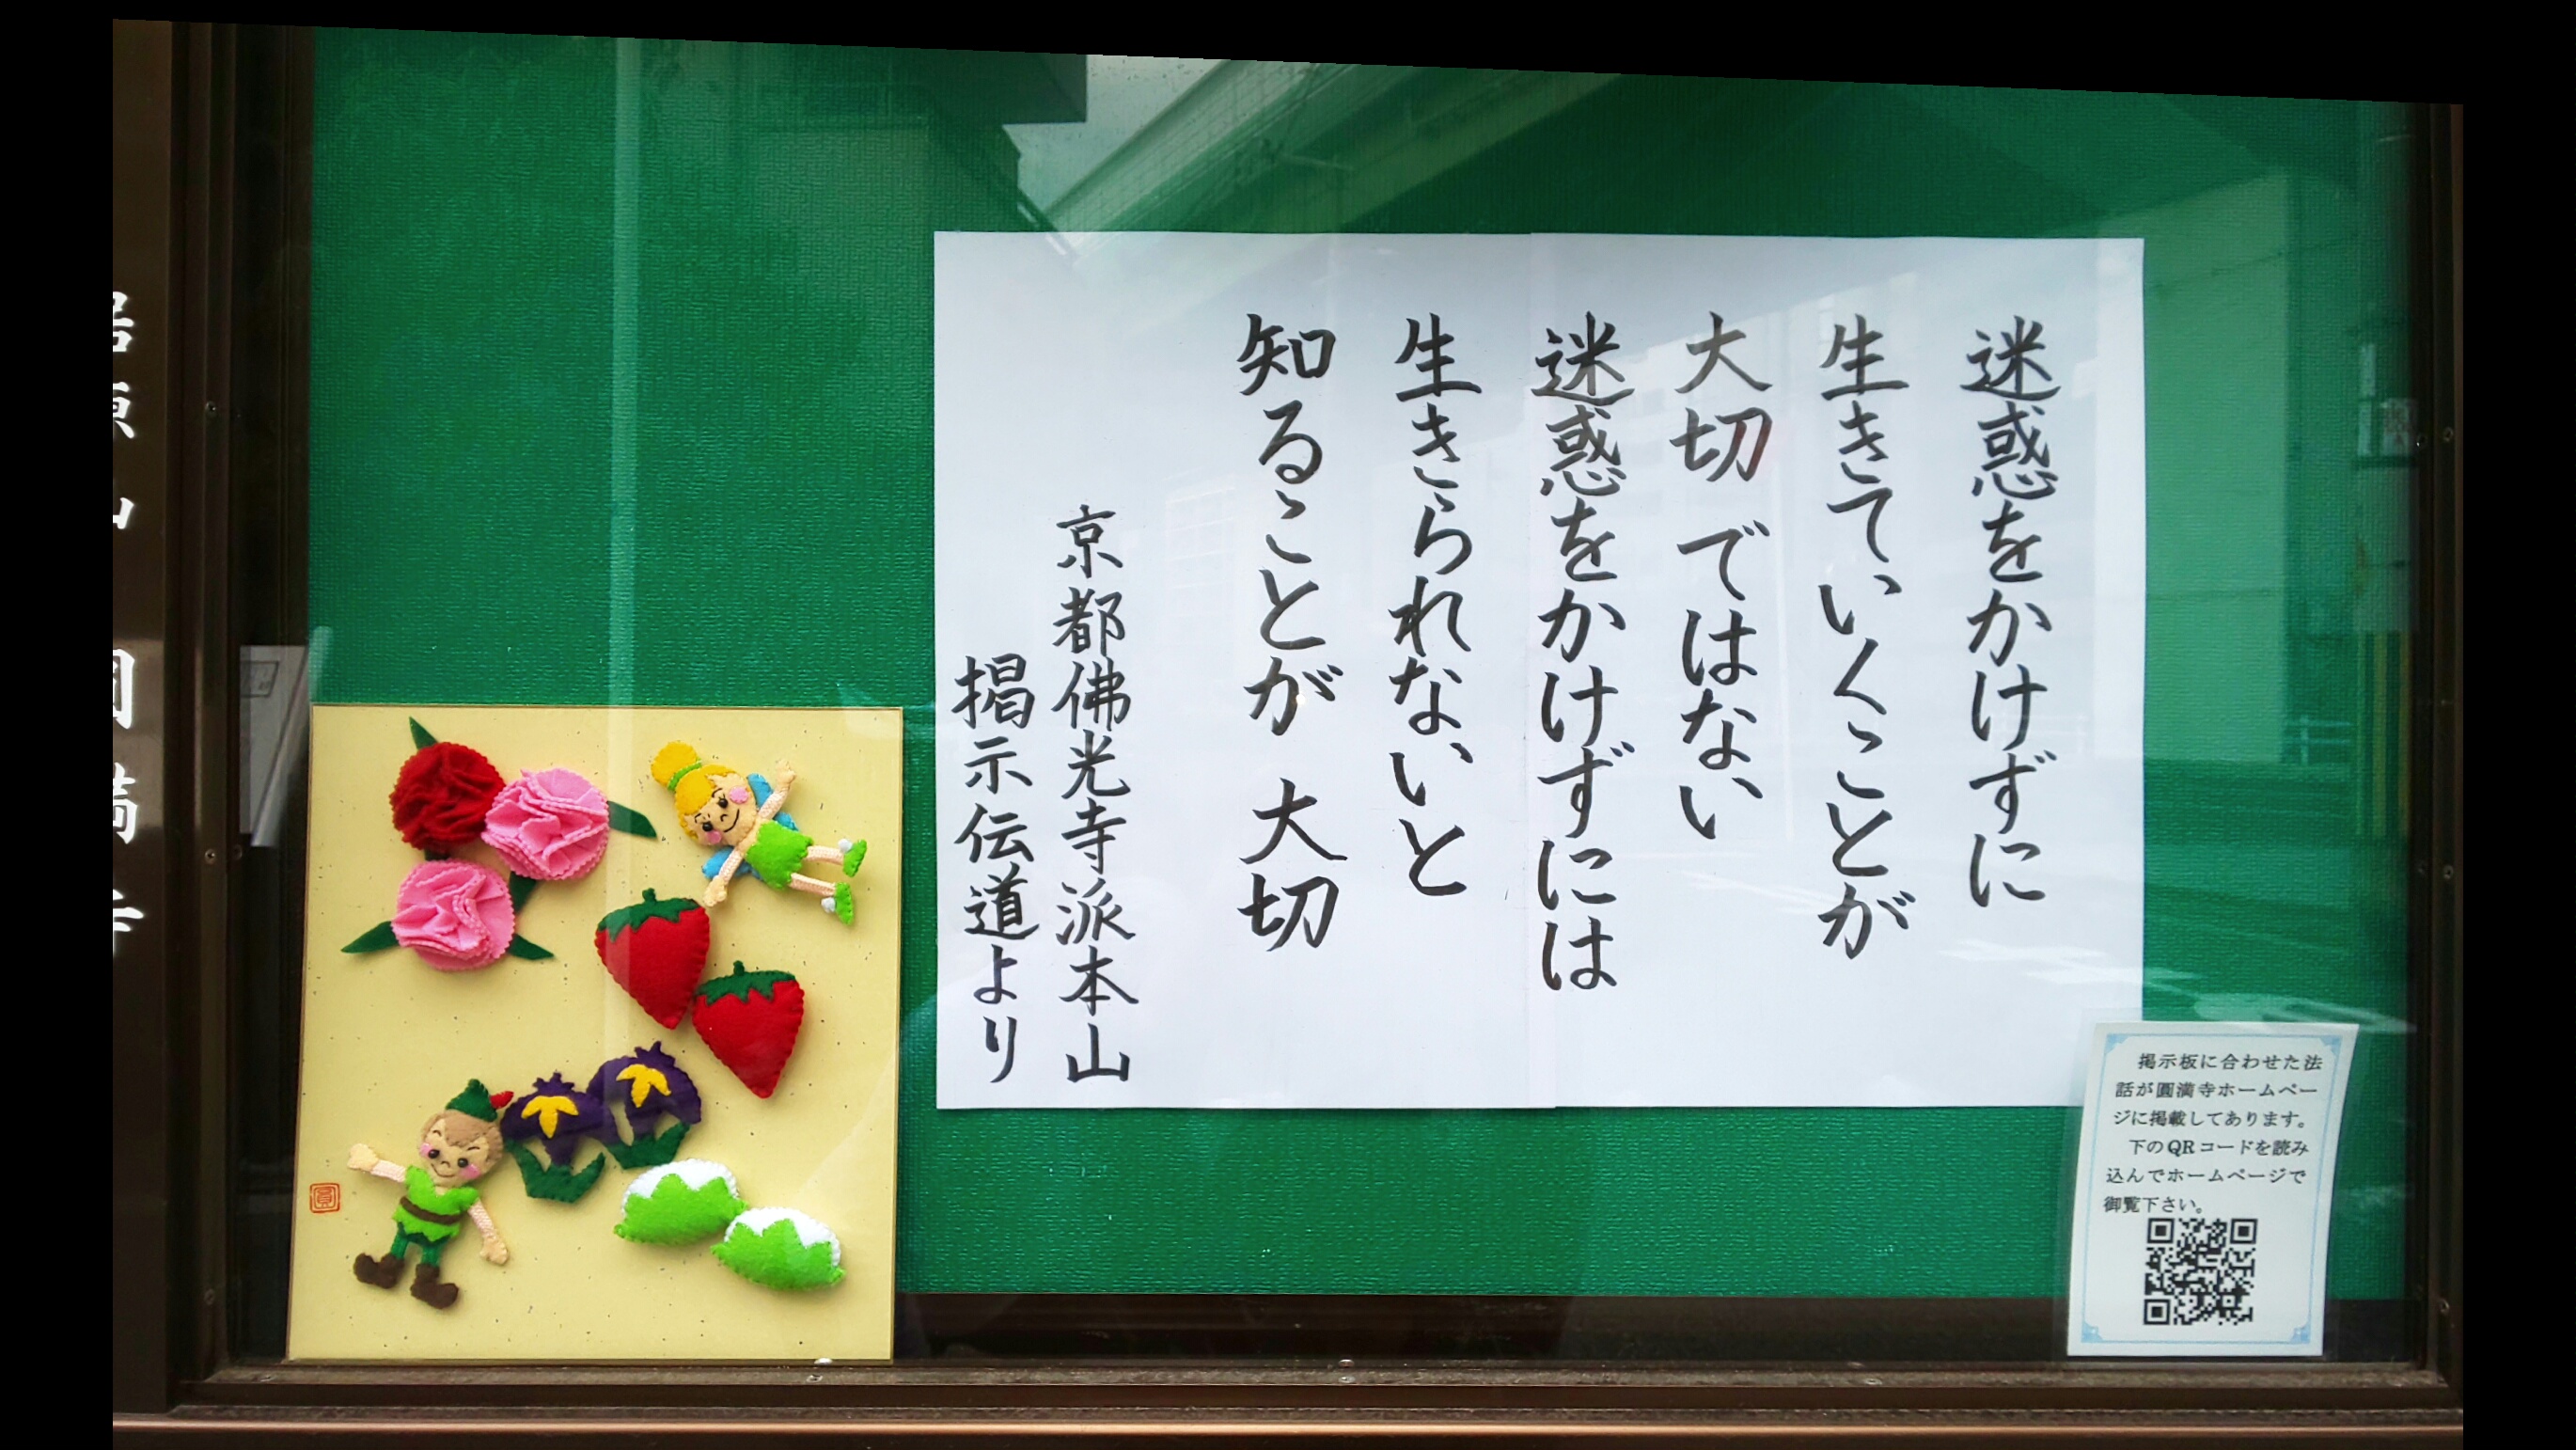 迷惑をかけずに
生きていくことが
大切ではない
迷惑をかけずには
生きられないと
知ることが 大切
京都佛光寺派本山
掲示伝道より
掲示板に合わせた法
話が圓満寺ホームペー
ジに掲載してあります。
下のQRコードを読み
込んでホームページで
御覧下さい。